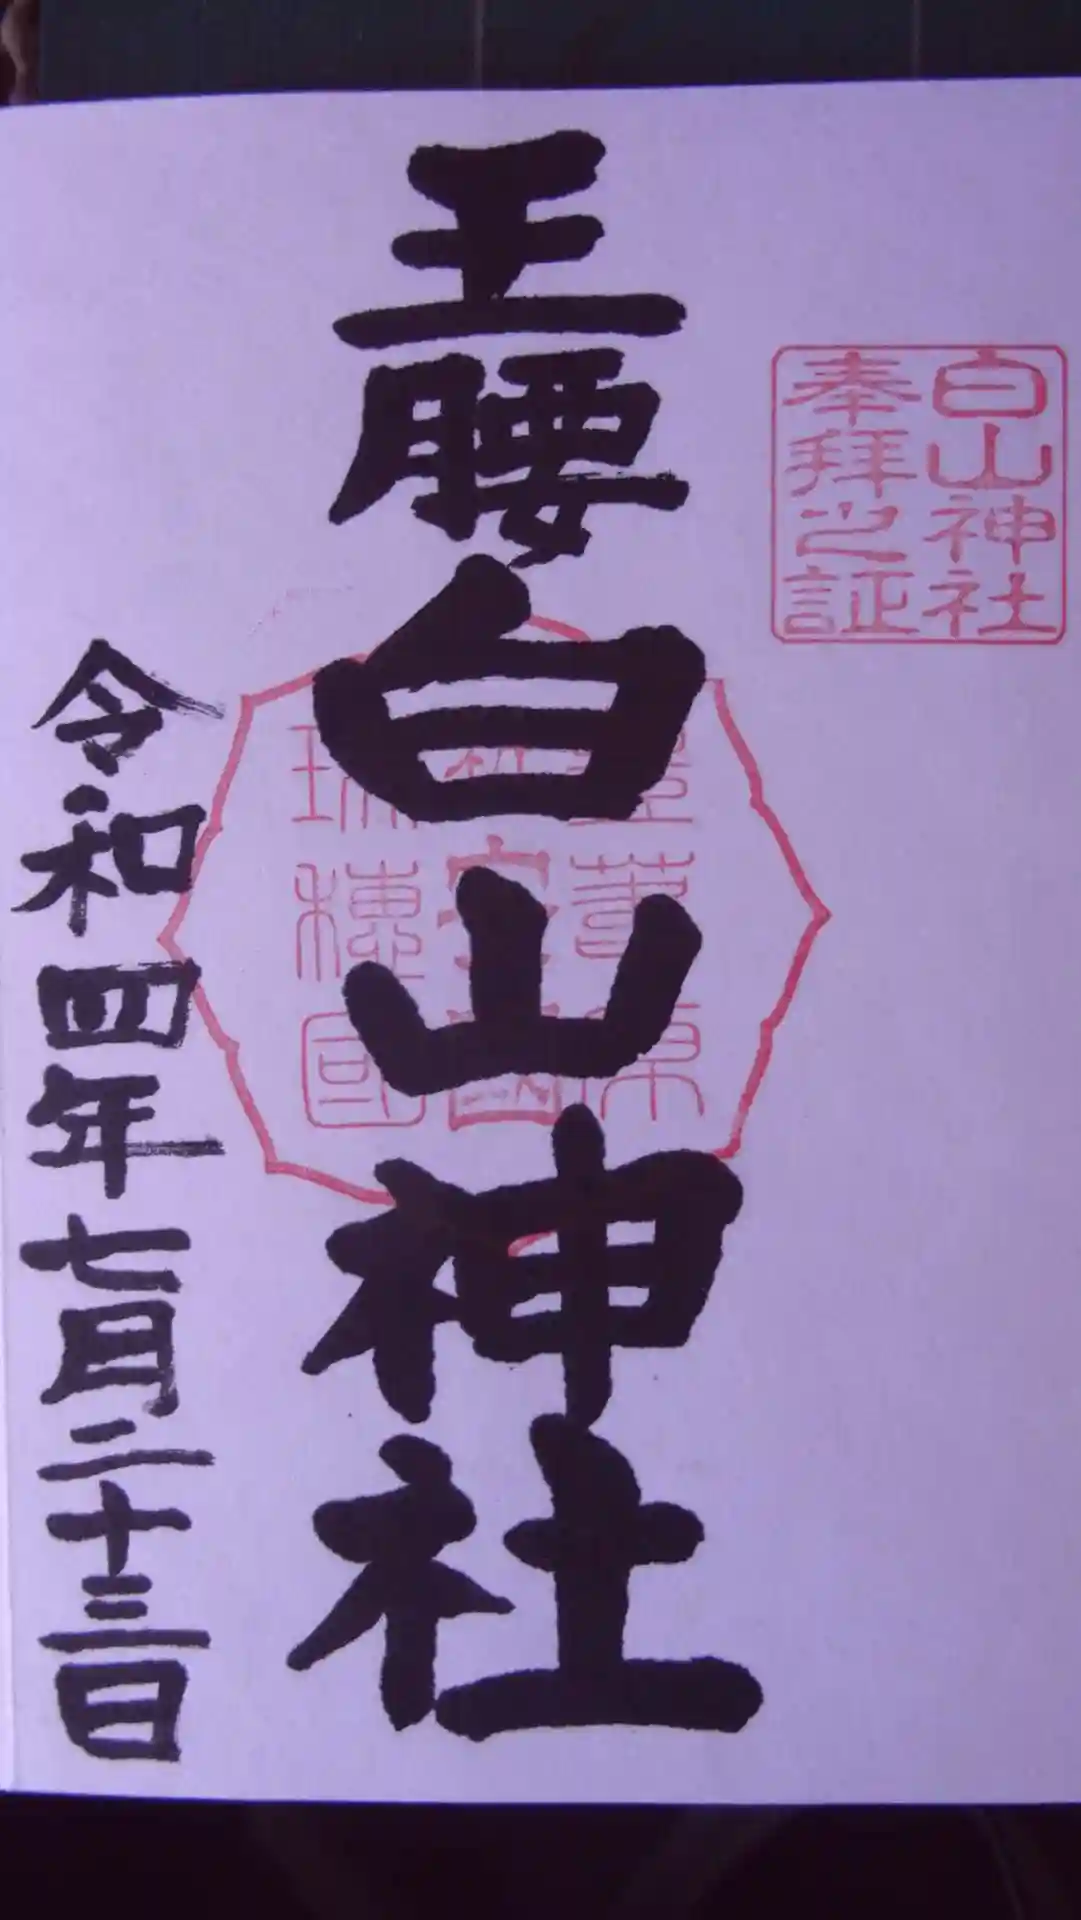 白山神社
奉拝之証
王腰白山神社
葦原
瑞穂國
令和四年七月二十三日